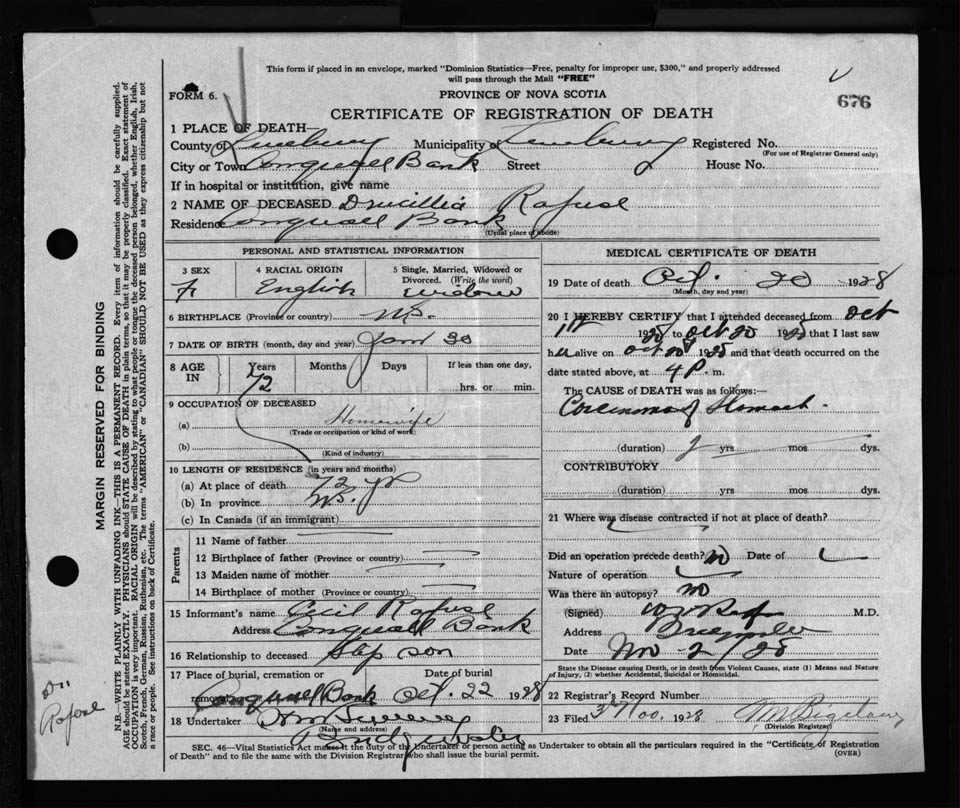 This form if placed in an envelope, marked "Dominion Statistics—Free, penalty for improper use, $300," and properly addressed
will pass through the Mail "FREE"
FORM 6.
PROVINCE OF NOVA SCOTIA
676
CERTIFICATE OF REGISTRATION OF DEATH
1 PLACE OF DEATH—
County of Lunenburg Municipality of Lunenburg Registered No.
(For use of Registrar General only)
City or Town Conquerall Bank Street House No.
If in hospital or institution, give name
2 NAME OF DECEASED Drucillia Rafuse
Residence Conquerall Bank
(Usual place of abode)
PERSONAL AND STATISTICAL INFORMATION
3 SEX F
4 RACIAL ORIGIN English
5 Single, Married, Widowed or Divorced. (Write the word) widow
6 BIRTHPLACE (Province or country) N.S.
7 DATE OF BIRTH (month, day and year) Jan 30
8 AGE IN Years 72 Months Days If less than one day, hrs. or min.
9 OCCUPATION OF DECEASED
(a) Housewife
(Trade or occupation or kind of work)
(b)
(Kind of industry)
10 LENGTH OF RESIDENCE (in years and months)
(a) At place of death 72 yr
(b) In province N.S.
(c) In Canada (if an immigrant)
Parents
11 Name of father
12 Birthplace of father (Province or country)
13 Maiden name of mother
14 Birthplace of mother (Province or country)
15 Informant's name Cecil Rafuse
Address Conquerall Bank
16 Relationship to deceased Step son
17 Place of burial, cremation or
removal Conquerall Bank Oct. 22 1928
18 Undertaker
(Name and address)
Bridgewater
MEDICAL CERTIFICATE OF DEATH
19 Date of death Oct. 20 1928
(Month, day and year)
20 I HEREBY CERTIFY that I attended deceased from Oct
1st 1928 to Oct 20 1928 that I last saw
her alive on Oct 20 1928 and that death occurred on the
date stated above, at 4 P. m.
The CAUSE OF DEATH was as follows:—
Carcinoma of Stomach.
(duration) yrs mos dys.
CONTRIBUTORY
(duration) yrs mos dys.
21 Where was disease contracted if not at place of death?
Did an operation precede death? No Date of
Nature of operation
Was there an autopsy? no
(Signed) M.D.
Address Bridgewater
Date Nov-2/28
State the Disease causing Death, or in death from Violent Causes, state (1) Means and Nature
of Injury, and (2) whether Accidental, Suicidal or Homicidal.
22 Registrar's Record Number
23 Filed 1928
(Division Registrar)
SEC. 46—Vital Statistics Act makes it the duty of the Undertaker or person acting as Undertaker to obtain all the particulars required in the "Certificate of Registration
of Death" and to file the same with the Division Registrar who shall issue the burial permit.
(OVER)
MARGIN RESERVED FOR BINDING
N.B. WRITE PLAINLY WITH UNFADING INK—THIS IS A PERMANENT RECORD. Every item of information should be carefully supplied.
AGE should be stated EXACTLY. PHYSICIANS should STATE CAUSE OF DEATH in plain terms, so that it may be properly classified. Exact statement of
OCCUPATION is very important. RACIAL ORIGIN will be described by stating to what people or tongue the deceased person belonged, whether English, Irish,
Scotch, French, German, Russian, Ruthenian, etc. The terms "AMERICAN" or "CANADIAN" SHOULD NOT BE USED as they express citizenship but not
a race or people. See instructions on back of Certificate.
Rafuse